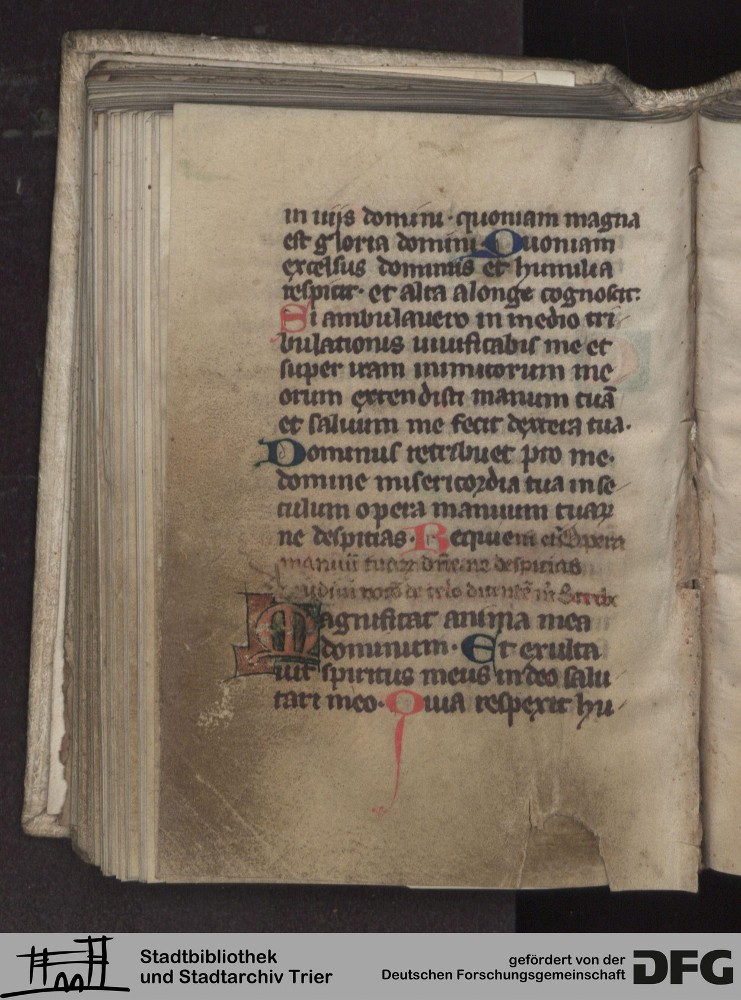 in uijs domini · quoniam magna
est gloria domini Quoniam
excelsus dominus et humilia
respicit · et alta alonge cognoscit:
Si ambulauero in medio tri
bulationis uiuificabis me et
super iram inimicorum me
orum extendisti manum tuā
et saluum me fecit dextera tua ·
Dominus retribuet pro me ·
domine misericordia tua in se
culum opera manuum tuaꝝ
ne despicias · Requiem et̄ Opera
manuū tuaꝝ dn̄e ne despicias
uocē de celo dicentē m
Magnificat anima mea
dominum · Et exulta
uit spiritus meus in deo salu
tari meo · Quia respexit hu
Stadtbibliothek
und Stadtarchiv Trier
gefördert von der
Deutschen Forschungsgemeinschaft
DFG